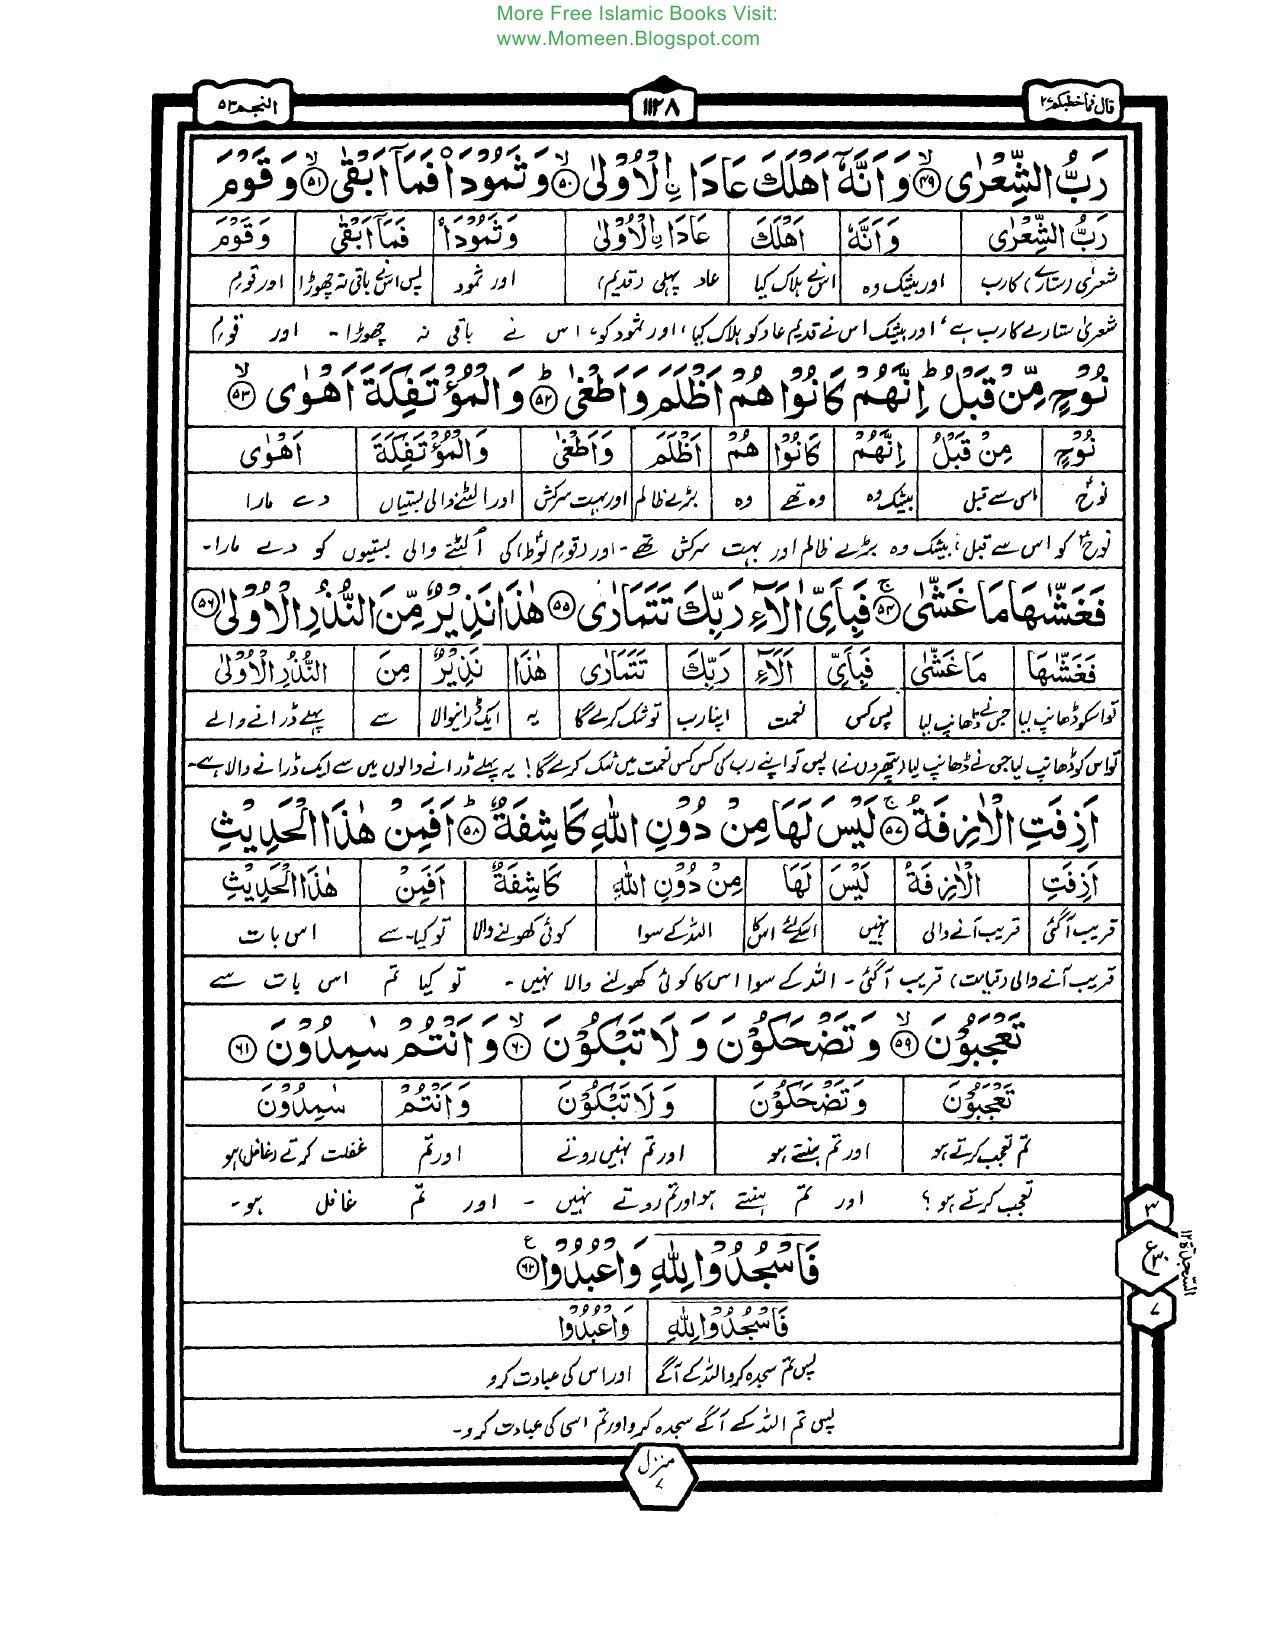 More Free Islamic Books Visit:
www.Momeen.Blogspot.com
قال فماخطبكم ٢٧
١١٢٨
النجم ٥٣
رَبُّ الشِّعْرٰى ﴿٤٩﴾ وَاَنَّهٗۤ اَهْلَكَ عَادَاۨ الْاُوْلٰى ﴿٥٠﴾ وَثَمُوْدَا۟ فَمَاۤ اَبْقٰى ﴿٥١﴾ وَقَوْمَ
رَبُّ الشِّعْرٰى وَاَنَّهٗ اَهْلَكَ عَادَاۨ الْاُوْلٰى وَثَمُوْدَا۟ فَمَاۤ اَبْقٰى وَقَوْمَ
شعریٰ (ستارے) کا رب اور بیشک وہ اس نے ہلاک کیا عاد پہلی (قدیم) اور ثمود پس اس نے باقی نہ چھوڑا اور قومِ
شعریٰ ستارے کا رب ہے، اور بیشک اس نے قدیم عاد کو ہلاک کیا، اور ثمود کو، اس نے باقی نہ چھوڑا۔ اور قومِ
نُوْحٍ مِّنْ قَبْلُ ؕ اِنَّهُمْ كَانُوْا هُمْ اَظْلَمَ وَاَطْغٰى ﴿٥٢﴾ وَالْمُؤْتَفِكَةَ اَهْوٰى ﴿٥٣﴾
نُوْحٍ مِنْ قَبْلُ اِنَّهُمْ كَانُوْا هُمْ اَظْلَمَ وَاَطْغٰى وَالْمُؤْتَفِكَةَ اَهْوٰى
نوحؑ اس سے قبل بیشک وہ وہ تھے وہ بڑے ظالم اور بہت سرکش اور الٹنے والی بستیاں دے مارا
نوحؑ کو اس سے قبل، بیشک وہ بڑے ظالم اور بہت سرکش تھے۔ اور (قومِ لوطؑ) کی الٹنے والی بستیوں کو دے مارا۔
فَغَشّٰىهَا مَا غَشّٰى ﴿٥٤﴾ فَبِاَيِّ اٰلَآءِ رَبِّكَ تَتَمَارٰى ﴿٥٥﴾ هٰذَا نَذِيْرٌ مِّنَ النُّذُرِ الْاُوْلٰى ﴿٥٦﴾
فَغَشّٰىهَا مَا غَشّٰى فَبِاَيِّ اٰلَآءِ رَبِّكَ تَتَمَارٰى هٰذَا نَذِيْرٌ مِنَ النُّذُرِ الْاُوْلٰى
تو اسکو ڈھانپ لیا جس نے ڈھانپ لیا پس کس نعمت اپنا رب تو شک کرے گا یہ ایک ڈرانیوالا سے پہلے ڈرانے والے
تو اس کو ڈھانپ لیا جس نے ڈھانپ لیا (پتھروں نے) پس تو اپنے رب کی کس کس نعمت میں شک کرے گا! یہ پہلے ڈرانے والوں میں سے ایک ڈرانے والا ہے۔
اَزِفَتِ الْاٰزِفَةُ ﴿٥٧﴾ لَيْسَ لَهَا مِنْ دُوْنِ اللّٰهِ كَاشِفَةٌ ﴿٥٨﴾ اَفَمِنْ هٰذَا الْحَدِيْثِ
اَزِفَتِ الْاٰزِفَةُ لَيْسَ لَهَا مِنْ دُوْنِ اللّٰهِ كَاشِفَةٌ اَفَمِنْ هٰذَا الْحَدِيْثِ
قریب آگئی قریب آنے والی نہیں اسکے لئے اس کا اللہ کے سوا کوئی کھولنے والا تو کیا۔ سے اس بات
قریب آنے والی (قیامت) قریب آگئی۔ اللہ کے سوا اس کا کوئی کھولنے والا نہیں۔ تو کیا تم اس بات سے
تَعْجَبُوْنَ ﴿٥٩﴾ وَتَضْحَكُوْنَ وَلَا تَبْكُوْنَ ﴿٦٠﴾ وَاَنْتُمْ سٰمِدُوْنَ ﴿٦١﴾
تَعْجَبُوْنَ وَتَضْحَكُوْنَ وَلَا تَبْكُوْنَ وَاَنْتُمْ سٰمِدُوْنَ
تم تعجب کرتے ہو اور تم ہنستے ہو اور تم نہیں روتے اور تم غفلت کرتے (غافل) ہو
تعجب کرتے ہو؟ اور تم ہنستے ہو اور تم روتے نہیں۔ اور تم غافل ہو۔
فَاسْجُدُوْا لِلّٰهِ وَاعْبُدُوْا ﴿٦٢﴾
فَاسْجُدُوْا لِلّٰهِ وَاعْبُدُوْا
پس تم سجدہ کرو اللہ کے آگے اور اس کی عبادت کرو
پس تم اللہ کے آگے سجدہ کرو اور تم اسی کی عبادت کرو۔
٣
ع ٣٠
٧
السجدة ١٢
منزل ٧